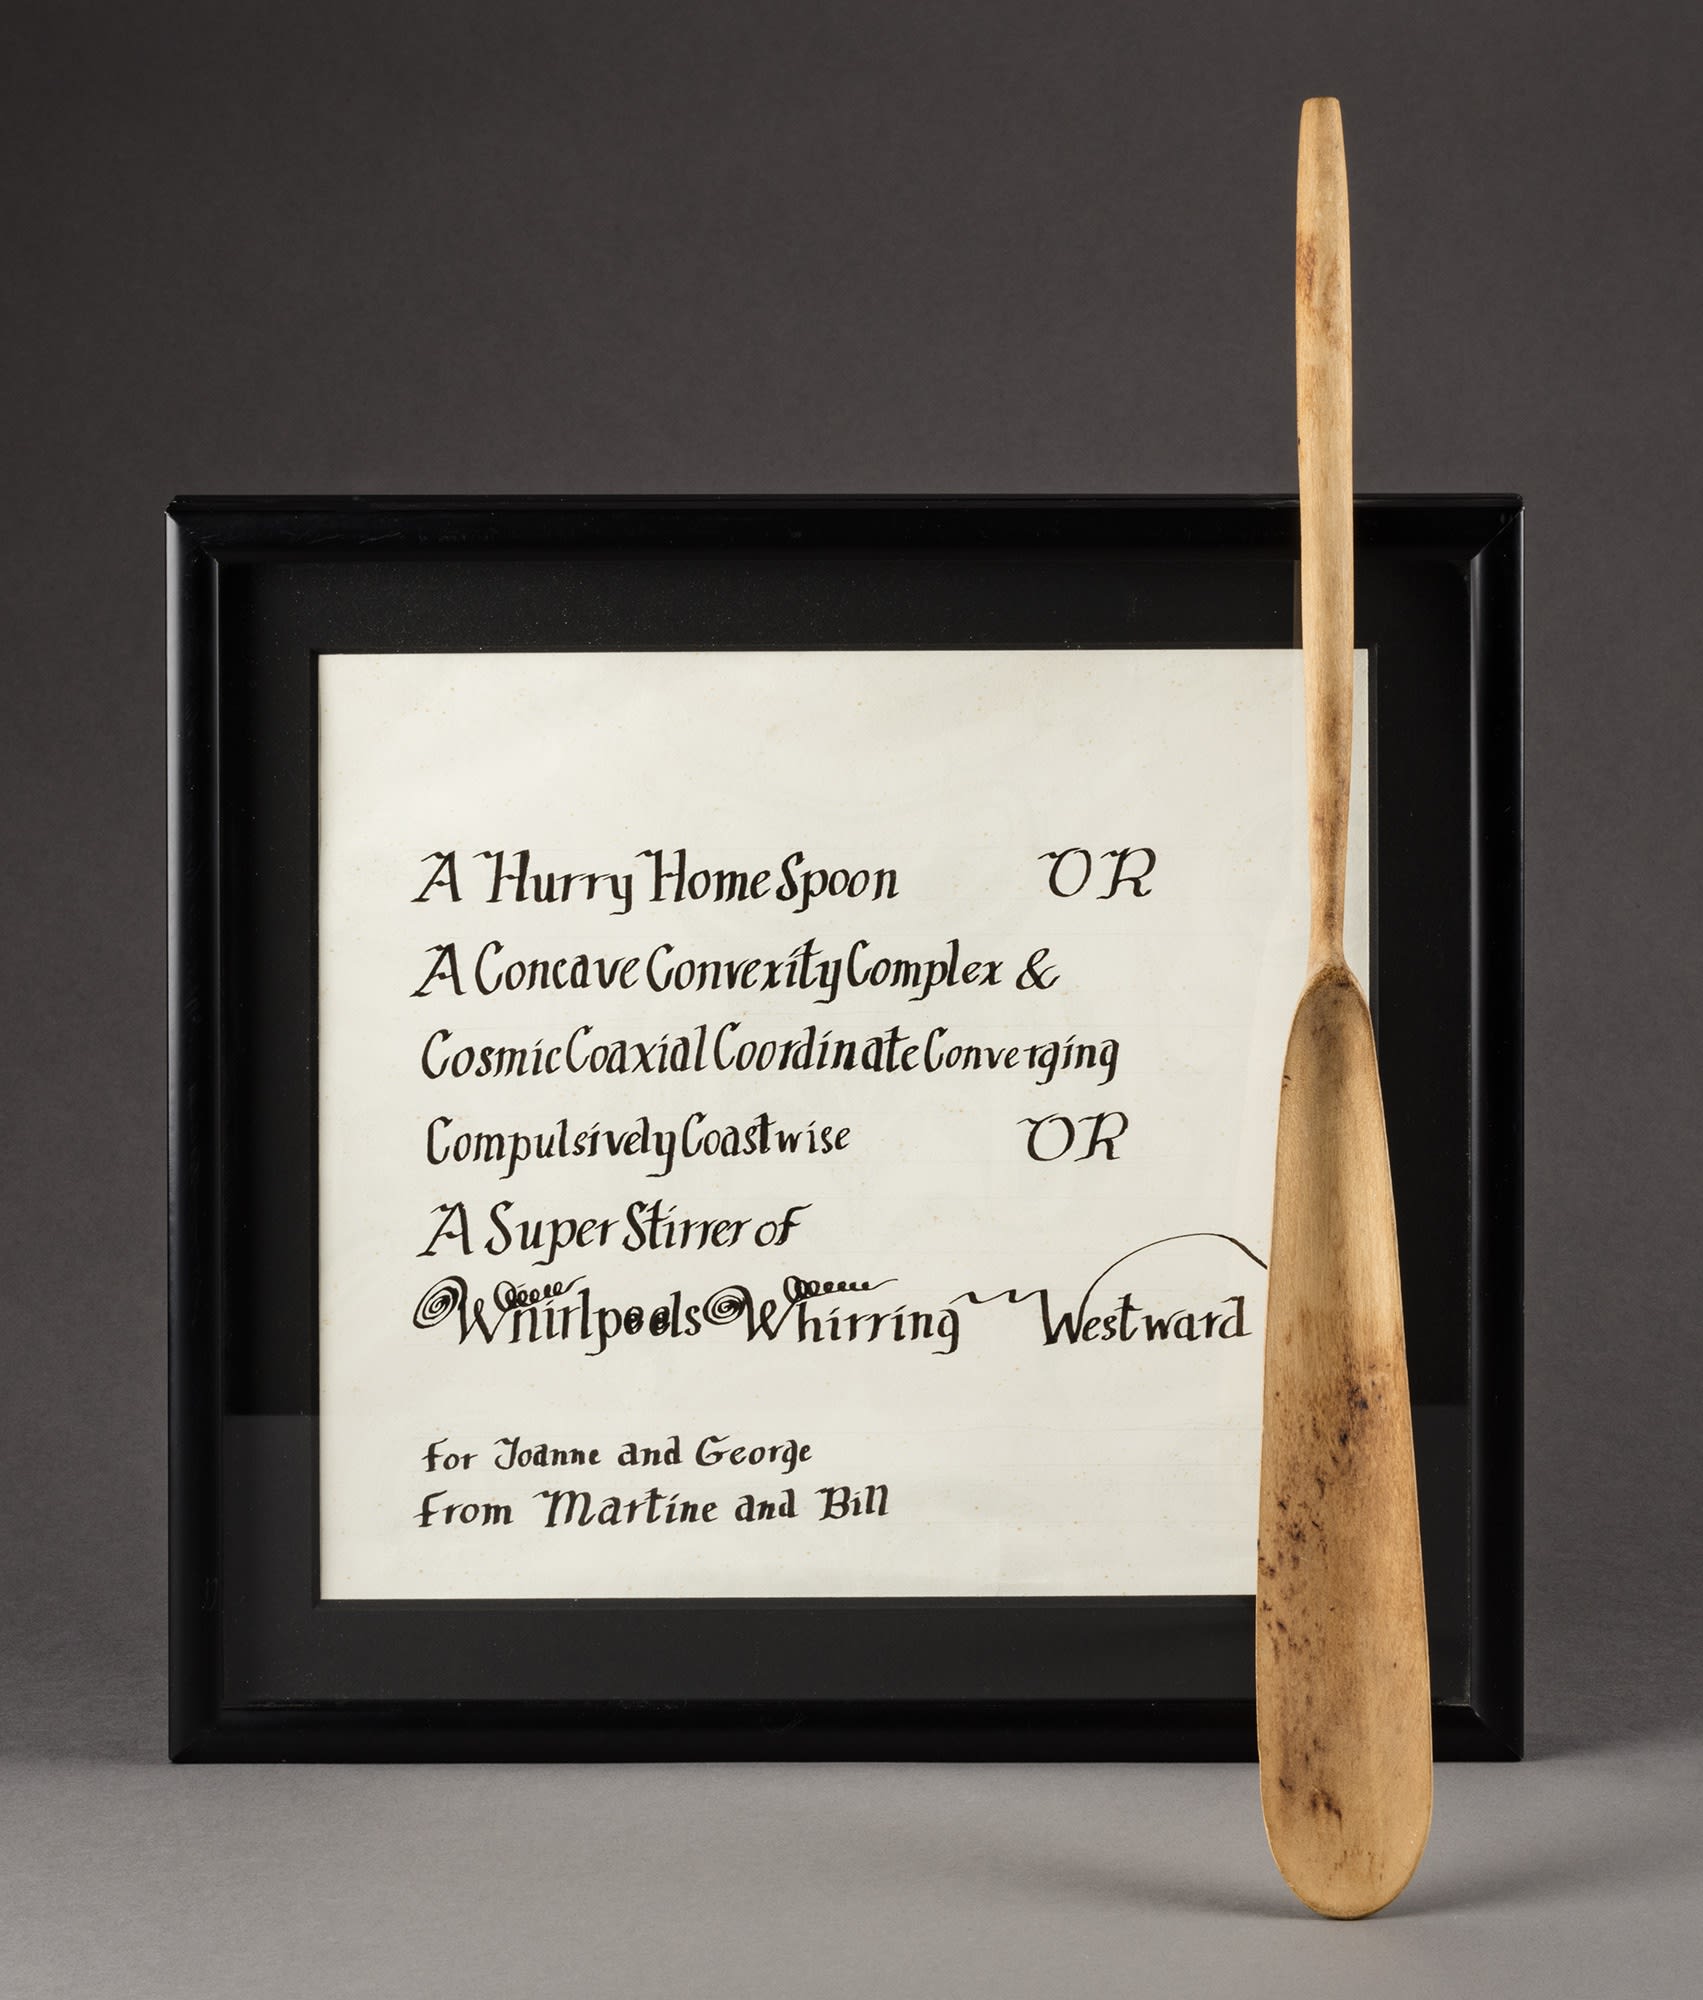 A Hurry Home Spoon OR
A Concave Convexity Complex &
Cosmic Coaxial Coordinate Converging
Compulsively Coastwise OR
A Super Stirrer of
Whirlpools Whirring Westward
for Joanne and George
from Martine and Bill